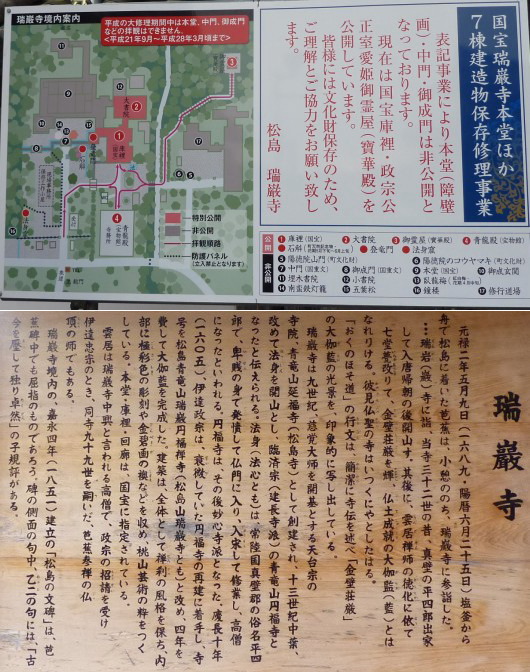 瑞巌寺境内案内
平成の大修理期間中は本堂、中門、御成門
などの拝観はできません。
<平成21年9月〜平成28年3月頃まで>
大書院
庫裡
(国宝)
青龍殿
(宝物館)
特別公開
非公開
拝観順路
防護パネル
(立入禁止となります)
国宝瑞巌寺本堂ほか
7棟建造物保存修理事業
表記事業により本堂(障壁
画)・中門・御成門は非公開と
なっております。
現在は国宝庫裡・政宗公
正室愛姫御霊屋(寶華殿)を
公開しています。
皆様には文化財保存のため、
ご理解とご協力をお願い致し
ます。
松島 瑞巌寺
公開
1 庫裡(国宝) 2 大書院 3 御霊屋(寶華殿) 4 青龍殿(宝物館)
登竜門 法身窟
5 陽徳院山門(町文化財) 6 陽徳院のコウヤマキ(町文化財)
非公開
7 中門(国重文) 8 御成門(国重文) 9 本堂(国宝) 10 御成玄関
11 埋木書院 12 小書院 13 臥龍梅
14 南蛮鉄灯籠 15 五葉松 16 鐘楼 17 修行道場
瑞巌寺
元禄二年五月九日(一六八九・陽暦六月二十五日)塩釜から
舟で松島に着いた芭蕉は、小憩ののち、瑞巌寺に参詣した。
…瑞岩(巌)寺に詣。当寺三十二世の昔、真壁の平四郎出家
して入唐帰朝の後開山す。其後に、雲居禅師の徳化に依て
七堂甍改りて、金壁荘厳光を輝、仏土成就の大伽藍(藍)とは
なれりける。彼見仏聖の寺はいづくにやとしたはる。
「おくのほそ道」の行文は、簡潔に寺伝を述べ「金壁荘厳」
の大伽藍の光景を、印象的に写し出している。
瑞巌寺は九世紀、慈覚大師を開基とする天台宗の
寺院、青龍山延福寺(松島寺)として創建され、十三世紀中葉、
改めて法身を開山とし、臨済宗(建長寺派)の青龍山円福寺と
なったと伝えられる。法身(法心とも)は、常陸国真壁郡の俗名平四
郎で、卑賎の身で発憤して仏門に入り、入宋して修業し、高僧
になったといわれる。円福寺は、その後妙心寺派となった。慶長十年
(一六〇五)、伊達政宗は、衰微していた円福寺の再建に着手し、寺
号を松島青龍山瑞巌円福禅寺(松島山瑞巌寺とも)と改め、四年を
費して大伽藍を完成した。建築は、全体として禅利の風格を保ち、内
部に極彩色の彫刻や金碧画の襖などを収め、桃山芸術の粋をつく
している。本堂・庫裡・回廊は、国宝に指定されている。
雲居は瑞巌寺中興と言われる高僧で、政宗の招請を受け
伊達忠宗のとき、同寺九十九世を嗣いだ。芭蕉参禅の仏
頂の師でもある。
瑞巌寺境内の、嘉永四年(一八五一)建立の「松島の文碑」は、芭
蕉碑中でも屈指のものであろう。碑の側面の句中、乙二の句には、「古
今を歴して独り卓然」の子規評がある。